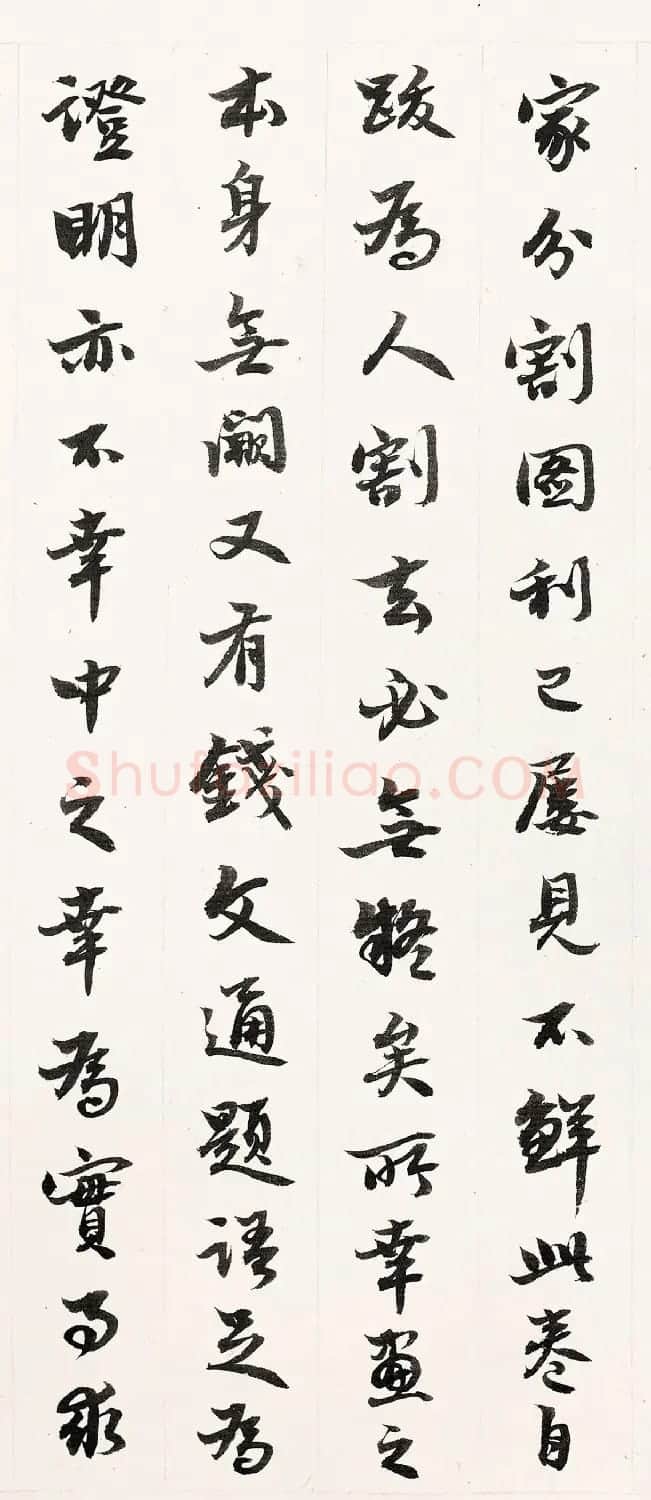 家分割圖利已屢見不鮮此卷自
跋為人割去必無疑矣所幸畫之
本身無闕又有錢文通題語足為
證明亦不幸中之幸為實事
Shufaziliao.COM